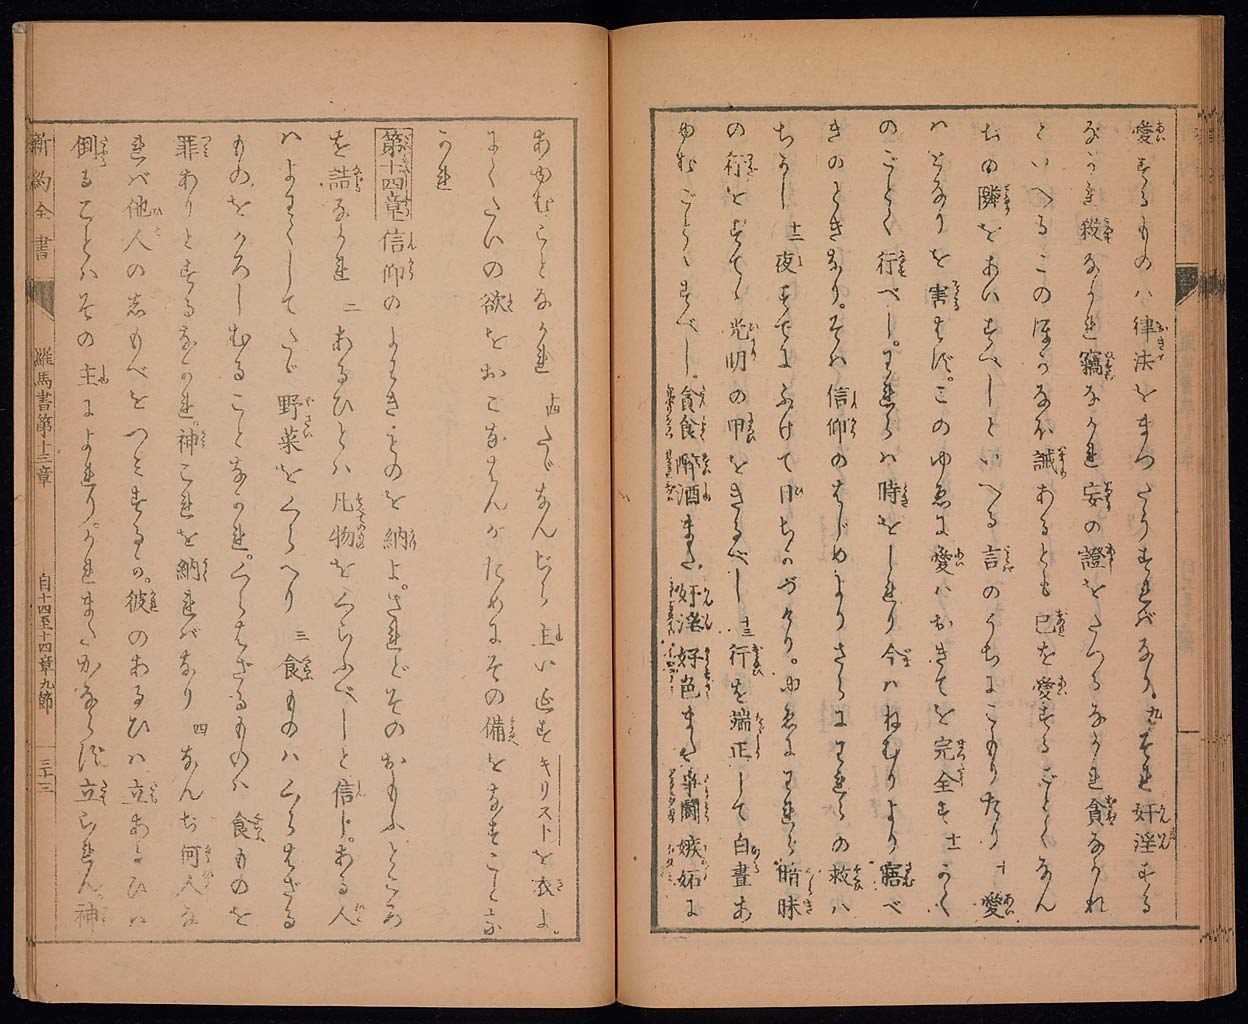 愛するものハ律法をまつたうすればなり。九それ奸淫する
なかれ殺なかれ竊なかれ妄の證をたつるなかれ貪なかれ
といへるこのほかなほ誡あるとも己を愛するごとくなん
ぢの隣をあいすべしといへる言のうちにこもりたり 十 愛
ハとなりを害はず。このゆゑに愛ハおきてを完全す 十一 かく
のごとく行べし。われらハ時をしれり今ハねむりより寤べ
きのときなり。そハ信仰のはじめよりさらにわれらの救ハ
ちかし 十二 夜すでにふけて日ちかづけり。ゆゑにわれら暗昧
の行をすてゝ光明の甲をきるべし 十三 行を端正して白晝あ
ゆむごとくすべし。貪食醉酒また奸淫好色また爭鬪嫉妬に
あゆむことなかれ 十四 たゞなんぢら主いゑすキリストを衣よ。
にくたいの欲をおこなはんがためにその備をなすことな
かれ
第十四章 信仰のよわきものを納よ。されどそのおもふところ
を詰るなかれ 二 あるひとハ凡物をくらふべしと信じ。ある人
ハよわくしてたゞ野菜をくらへり 三 食ものハくらはざる
ものをかろしむることなかれ。くらはざるものハ食ものを
罪ありとするなかれ。神これを納ればなり 四 なんぢ何人なれ
ば他人のしもべをつみするか。彼のあるひハ立あるひハ
倒ることハその主によれり。かれまたかならず立られん神
新約全書
羅馬書第十三章
自十四至十四章九節
三十三